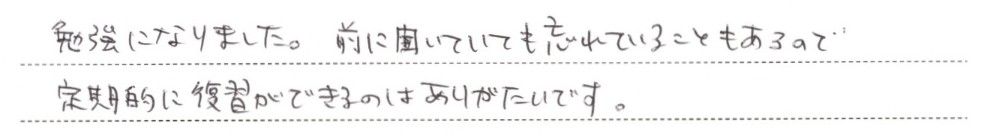 勉強になりました。 前に聞いていても忘れていることもあるので
定期的に復習ができるのはありがたいです。